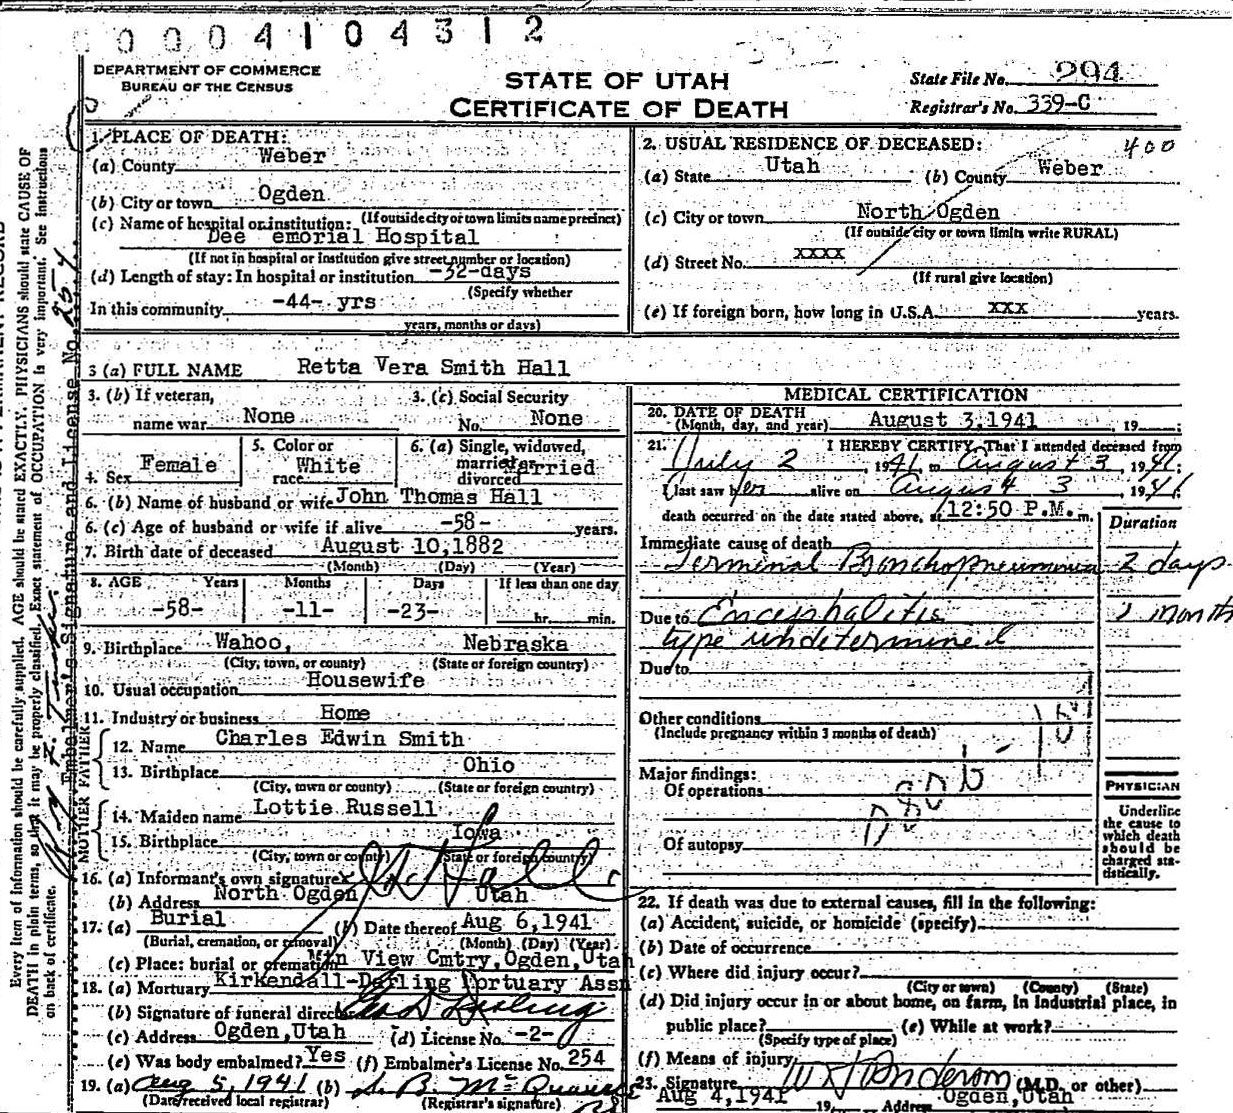 00004104312
DEPARTMENT OF COMMERCE
BUREAU OF THE CENSUS
STATE OF UTAH
CERTIFICATE OF DEATH
State File No. 294
Registrar's No. 339-C
1. PLACE OF DEATH:
(a) County Weber
(b) City or town Ogden
(If outside city or town limits name precinct)
(c) Name of hospital or institution:
Dee emorial Hospital
(If not in hospital or institution give street number or location)
(d) Length of stay: In hospital or institution -32-days
(Specify whether
In this community -44- yrs
years, months or days)
2. USUAL RESIDENCE OF DECEASED: 400
(a) State Utah (b) County Weber
(c) City or town North Ogden
(If outside city or town limits write RURAL)
(d) Street No. xxxx
(If rural give location)
(e) If foreign born, how long in U.S.A. xxx years.
3 (a) FULL NAME Retta Vera Smith Hall
3. (b) If veteran, 3. (c) Social Security
name war None No. None
4. Sex Female 5. Color or race White 6. (a) Single, widowed, married or divorced Married
6. (b) Name of husband or wife John Thomas Hall
6. (c) Age of husband or wife if alive -58- years.
7. Birth date of deceased August 10,1882
(Month) (Day) (Year)
8. AGE Years Months Days If less than one day
-58- -11- -23- hr. min.
9. Birthplace Wahoo, Nebraska
(City, town, or county) (State or foreign country)
10. Usual occupation Housewife
11. Industry or business Home
FATHER
12. Name Charles Edwin Smith
13. Birthplace Ohio
(City, town or county) (State or foreign country)
MOTHER
14. Maiden name Lottie Russell
15. Birthplace Iowa
(City, town or county) (State or foreign country)
16. (a) Informant's own signature Hall
(b) Address North Ogden Utah
17. (a) Burial (b) Date thereof Aug 6,1941
(Burial, cremation, or removal) (Month) (Day) (Year)
(c) Place: burial or cremation Mtn View Cmtry,Ogden,Utah
18. (a) Mortuary Kirkendall-Darling Mortuary Assn
(b) Signature of funeral director Geo D Darling
(c) Address Ogden,Utah (d) License No. -2-
(e) Was body embalmed? Yes (f) Embalmer's License No. 254
19. (a) Aug 5, 1941 (b)
(Date received local registrar) (Registrar's signature)
MEDICAL CERTIFICATION
20. DATE OF DEATH
(Month, day, and year) August 3,1941, 19
21. I HEREBY CERTIFY, That I attended deceased from
July 2, 1941, to August 3, 1941;
I last saw her alive on August 3, 1941;
death occurred on the date stated above, at 12:50 P.M. m.
Duration
Immediate cause of death
Terminal Bronchopneumonia 2 days
Due to Encephalitis month
type undetermined
Due to
Other conditions
(Include pregnancy within 3 months of death)
Major findings:
Of operations
Of autopsy
PHYSICIAN
Underline
the cause to
which death
should be
charged sta-
tistically.
22. If death was due to external causes, fill in the following:
(a) Accident, suicide, or homicide (specify)
(b) Date of occurrence
(c) Where did injury occur?
(City or town) (County) (State)
(d) Did injury occur in or about home, on farm, in industrial place, in
public place? (e) While at work?
(Specify type of place)
(f) Means of injury
23. Signature Anderson (M.D. or other)
Aug 4,1941 19 Address Ogden,Utah
Every item of information should be carefully supplied. AGE should be stated EXACTLY. PHYSICIANS should state CAUSE OF
DEATH in plain terms, so that it may be properly classified. Exact statement of OCCUPATION is very important. See instructions
on back of certificate.
Embalmer's Signature and License No. 254